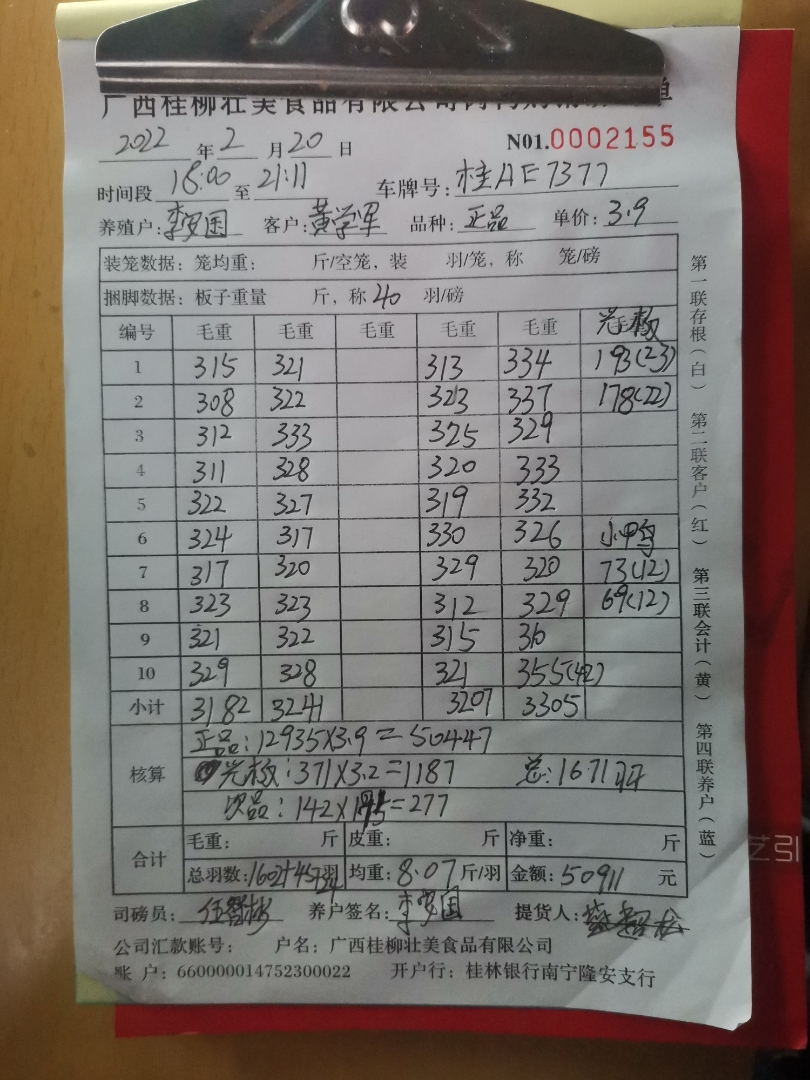 广西桂柳壮美食品有限公司
单
2022 年 2 月 20 日 N01.0002155
时间段 18:00 至 21:11 车牌号: 桂AE7377
养殖户: 李罗国 客户: 黄学军 品种: 正品 单价: 3.9
装笼数据: 笼均重: 斤/空笼, 装 羽/笼, 称 笼/磅
捆脚数据: 板子重量 斤, 称 40 羽/磅
编号 毛重 毛重 毛重 毛重 毛重
1 315 321 313 334 193(23)
2 308 322 323 337 178(22)
3 312 333 325 329
4 311 328 320 333
5 322 327 319 332
6 324 317 330 326 小鸭
7 317 320 329 320 73(12)
8 323 323 312 329 69(12)
9 321 322 315 310
10 329 328 321 355(42)
小计 3182 3241 3207 3305
核算
正品: 12935×3.9=50447
371×3.2=1187 总: 1671羽
次品: 142× =277
合计
毛重: 斤 皮重: 斤 净重: 斤
总羽数: 1602+45羽 均重: 8.07 斤/羽 金额: 50911 元
司磅员: 养户签名: 李罗国 提货人:
公司汇款账号: 户名: 广西桂柳壮美食品有限公司
账户: 660000014752300022 开户行: 桂林银行南宁隆安支行
第一联存根(白) 第二联客户(红) 第三联会计(黄) 第四联养户(蓝)
艺引